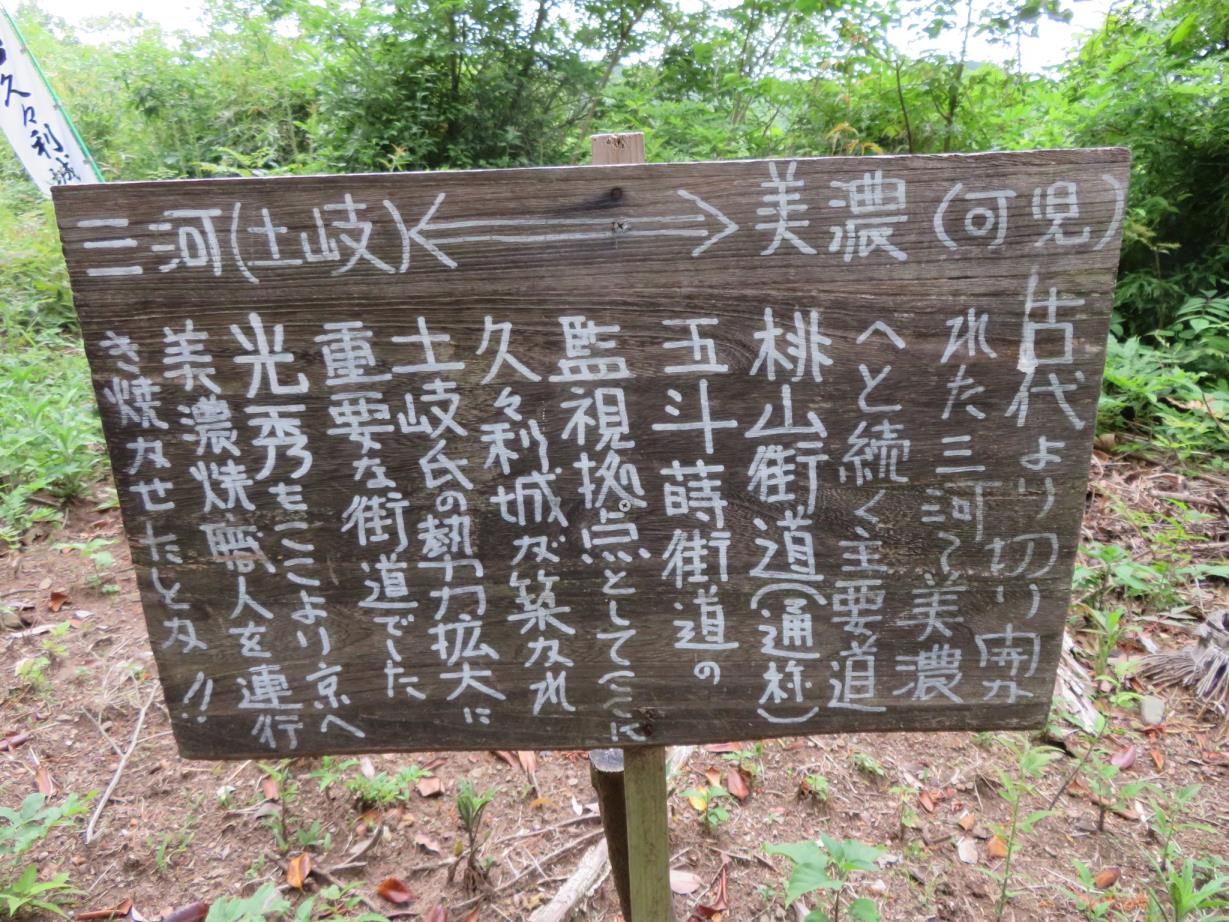 三河(土岐)⟷美濃(可児)
古代より切り開か
れた三河〜美濃
へと続く主要道
桃山街道(通称)
五斗蒔街道の
監視拠点としてここに
久々利城が築かれ
土岐氏の勢力拡大に
重要な街道でした
光秀もここより京へ
美濃焼職人を連行
き焼かせたとか!!
久々利城